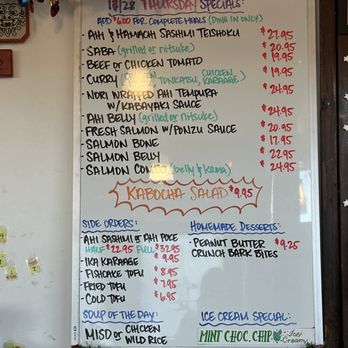 12/28 THURSDAY SPECIALS:
ADD $6.00 FOR COMPLETE MEALS (DINE IN ONLY)
- AHI & HAMACHI SASHIMI TEISHOKU $27.95
- SABA (grilled or nitsuke) $20.95
- BEEF or CHICKEN TOMATO $19.95
- CURRY TONKATSU, CHICKEN, KARAAGE $19.95
- NORI WRAPPED AHI TEMPURA $24.95
W/KABAYAKI SAUCE
- AHI BELLY (grilled or nitsuke) $24.95
- FRESH SALMON W/PONZU SAUCE $20.95
- SALMON BONE $17.95
- SALMON BELLY $22.95
- SALMON COMBO (belly & kama) $24.95
KABOCHA SALAD $9.95
SIDE ORDERS:
AHI SASHIMI or AHI POKE
HALF $22.95 FULL $32.95
- IKA KARAAGE $9.95
- FISHCAKE TOFU $8.95
- FRIED TOFU $7.95
- COLD TOFU $6.95
HOMEMADE DESSERTS:
- PEANUT BUTTER $9.25
CRUNCH BARK BITES
SOUP OF THE DAY:
MISO or CHICKEN
WILD RICE
ICE CREAM SPECIAL:
MINT CHOC. CHIP Ice Cream